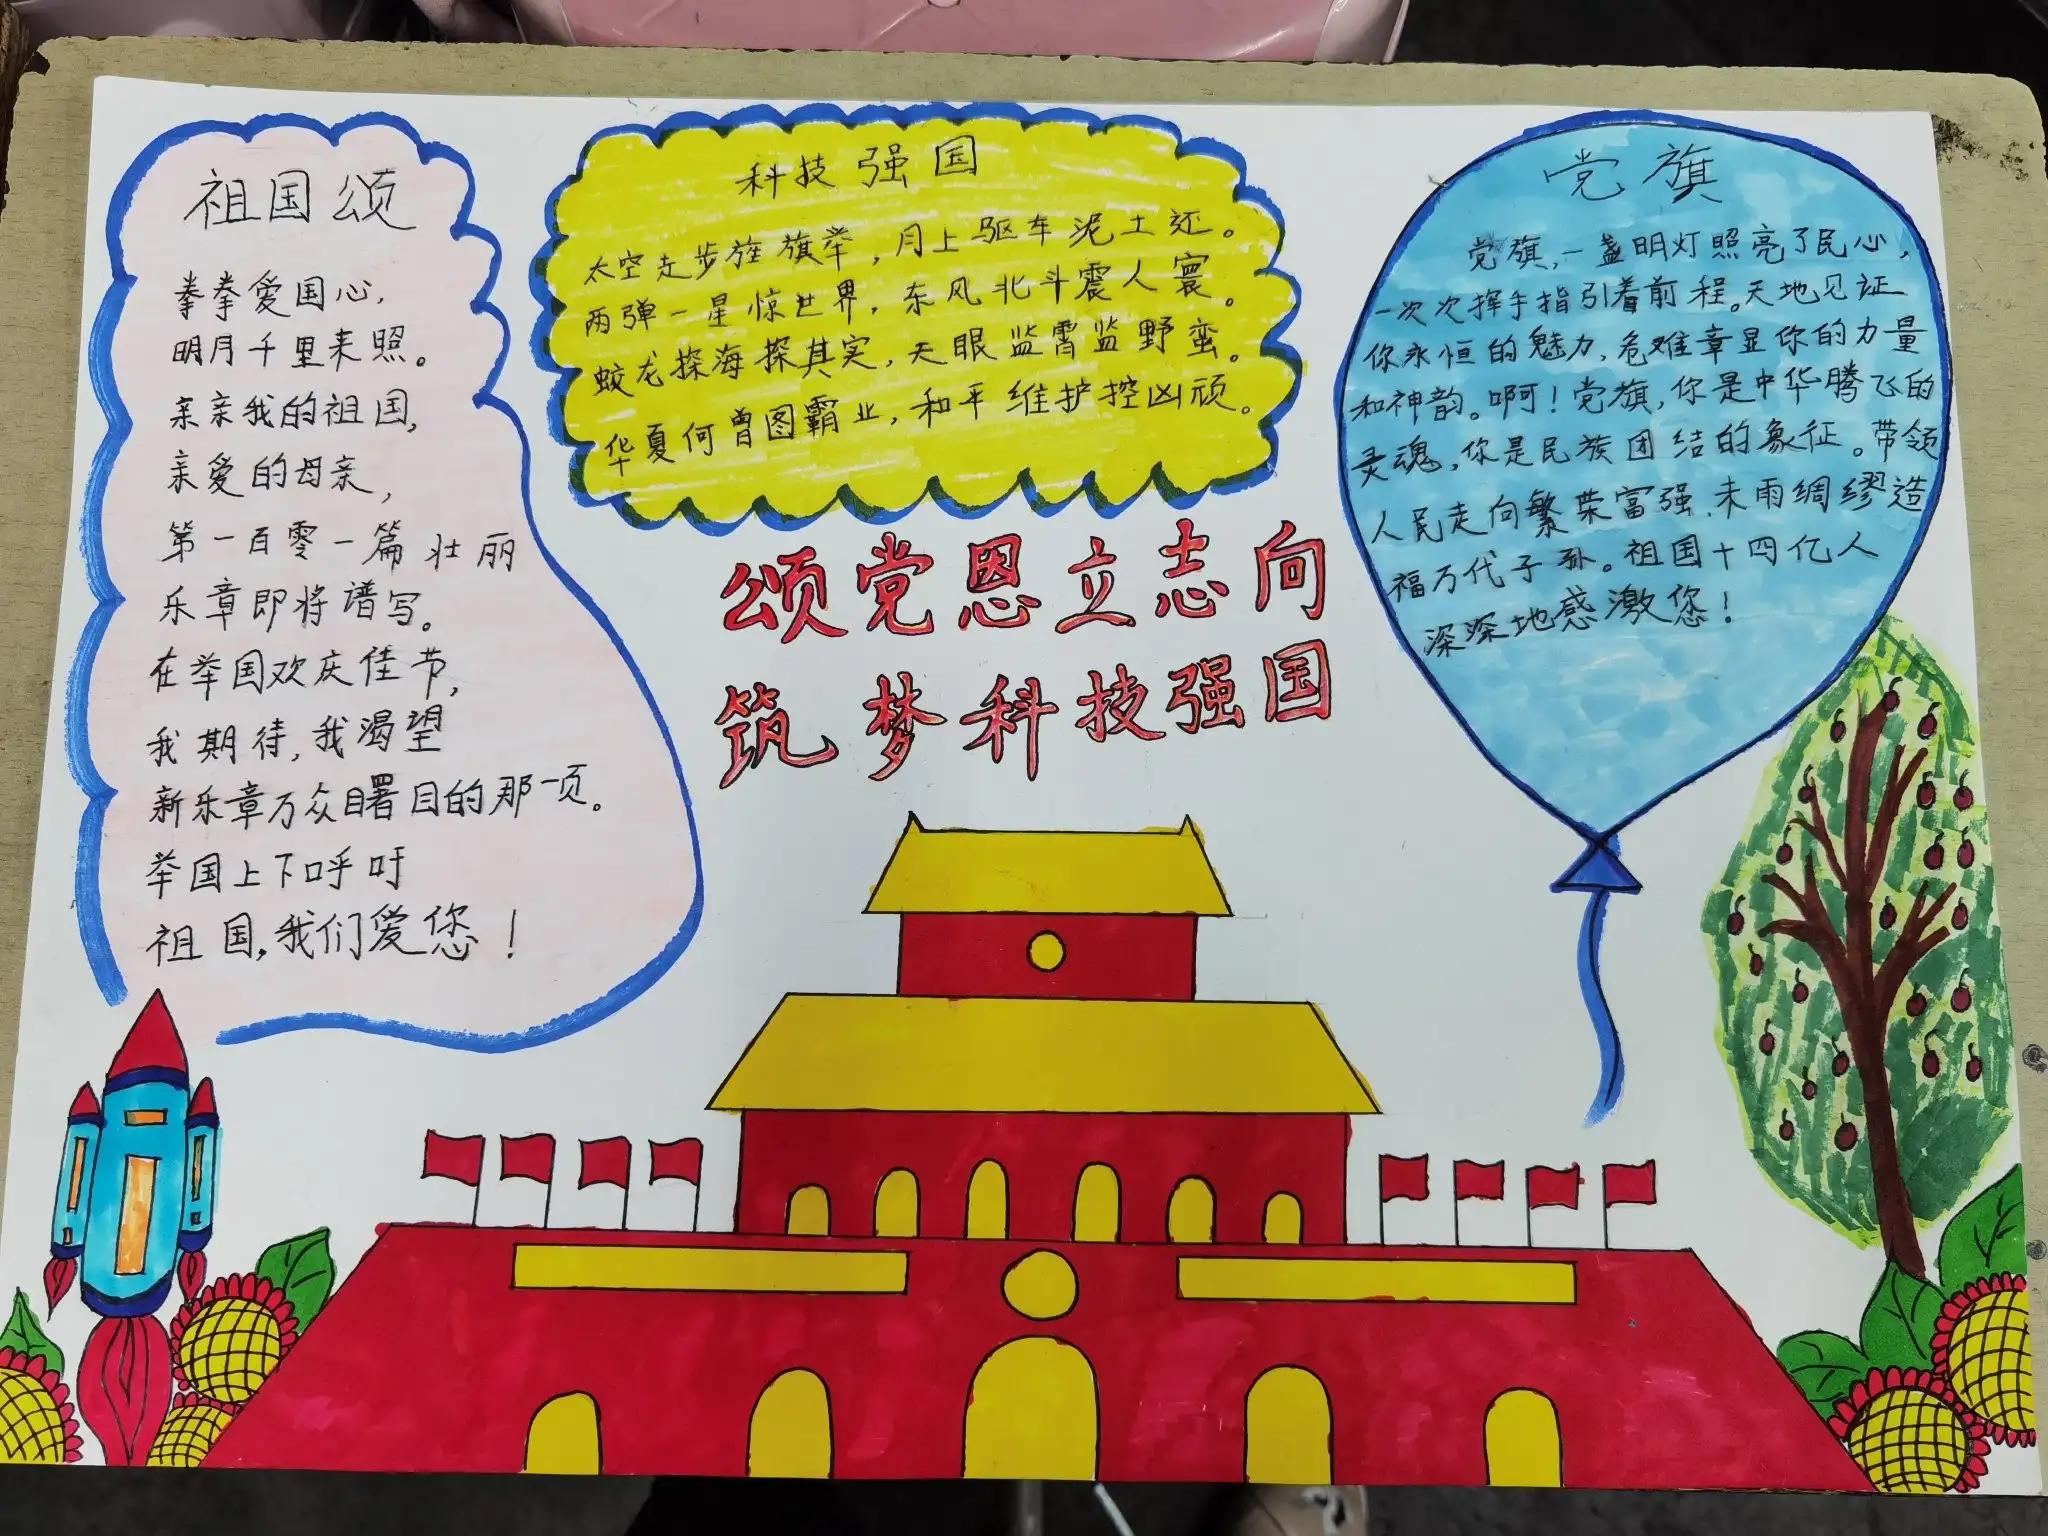 祖国颂
拳拳爱国心，
明月千里来照。
亲亲我的祖国，
亲爱的母亲，
第一百零一篇壮丽
乐章即将谱写。
在举国欢庆佳节，
我期待，我渴望
新乐章万众瞩目的那一页。
举国上下呼吁
祖国，我们爱您！
科技强国
太空走步旌旗举，月上驱车泥土还。
两弹一星惊世界，东风北斗震人寰。
蛟龙探海探其实，天眼监霄监野蛮。
华夏何曾图霸业，和平维护控凶顽。
颂党恩立志向
筑梦科技强国
党旗
党旗，一盏明灯照亮了民心，
一次次挥手指引着前程。天地见证
你永恒的魅力，危难章显你的力量
和神韵。啊！党旗，你是中华腾飞的
灵魂，你是民族团结的象征。带领
人民走向繁荣富强，未雨绸缪造
福万代子孙。祖国十四亿人
深深地感激您！